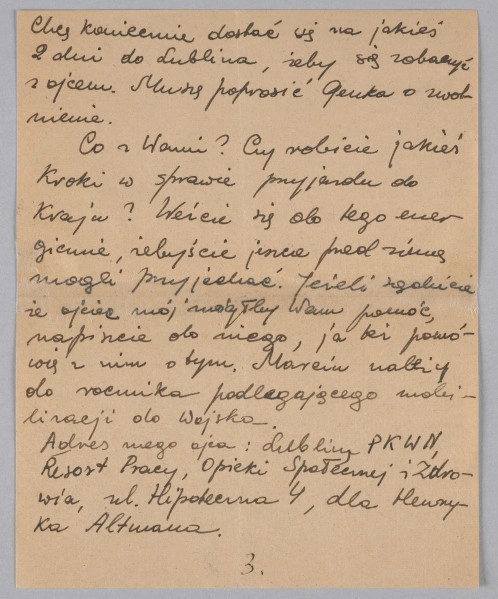 Chcę koniecznie dostać się na jakieś
2 dni do Lublina, żeby się zobaczyć
z ojcem. Muszę poprosić Genka o zwol-
nienie.
Co z Wami? Czy robicie jakieś
kroki w sprawie przyjazdu do
Kraju? Weźcie się do tego ener-
gicznie, żebyście jeszcze przed zimą
mogli przyjechać. Jeżeli sądzicie
że ojciec mój mógłby Wam pomóc,
napiszcie do niego, ja też pomó-
wię z nim o tym. Marcin należy
do rocznika podlegającego mobi-
lizacji do Wojska.
Adres mego ojca: Lublin, PKWN,
Resort Pracy, Opieki Społecznej i Zdro-
wia, ul. Hipoteczna 4, dla Henry-
ka Altmana.
3.